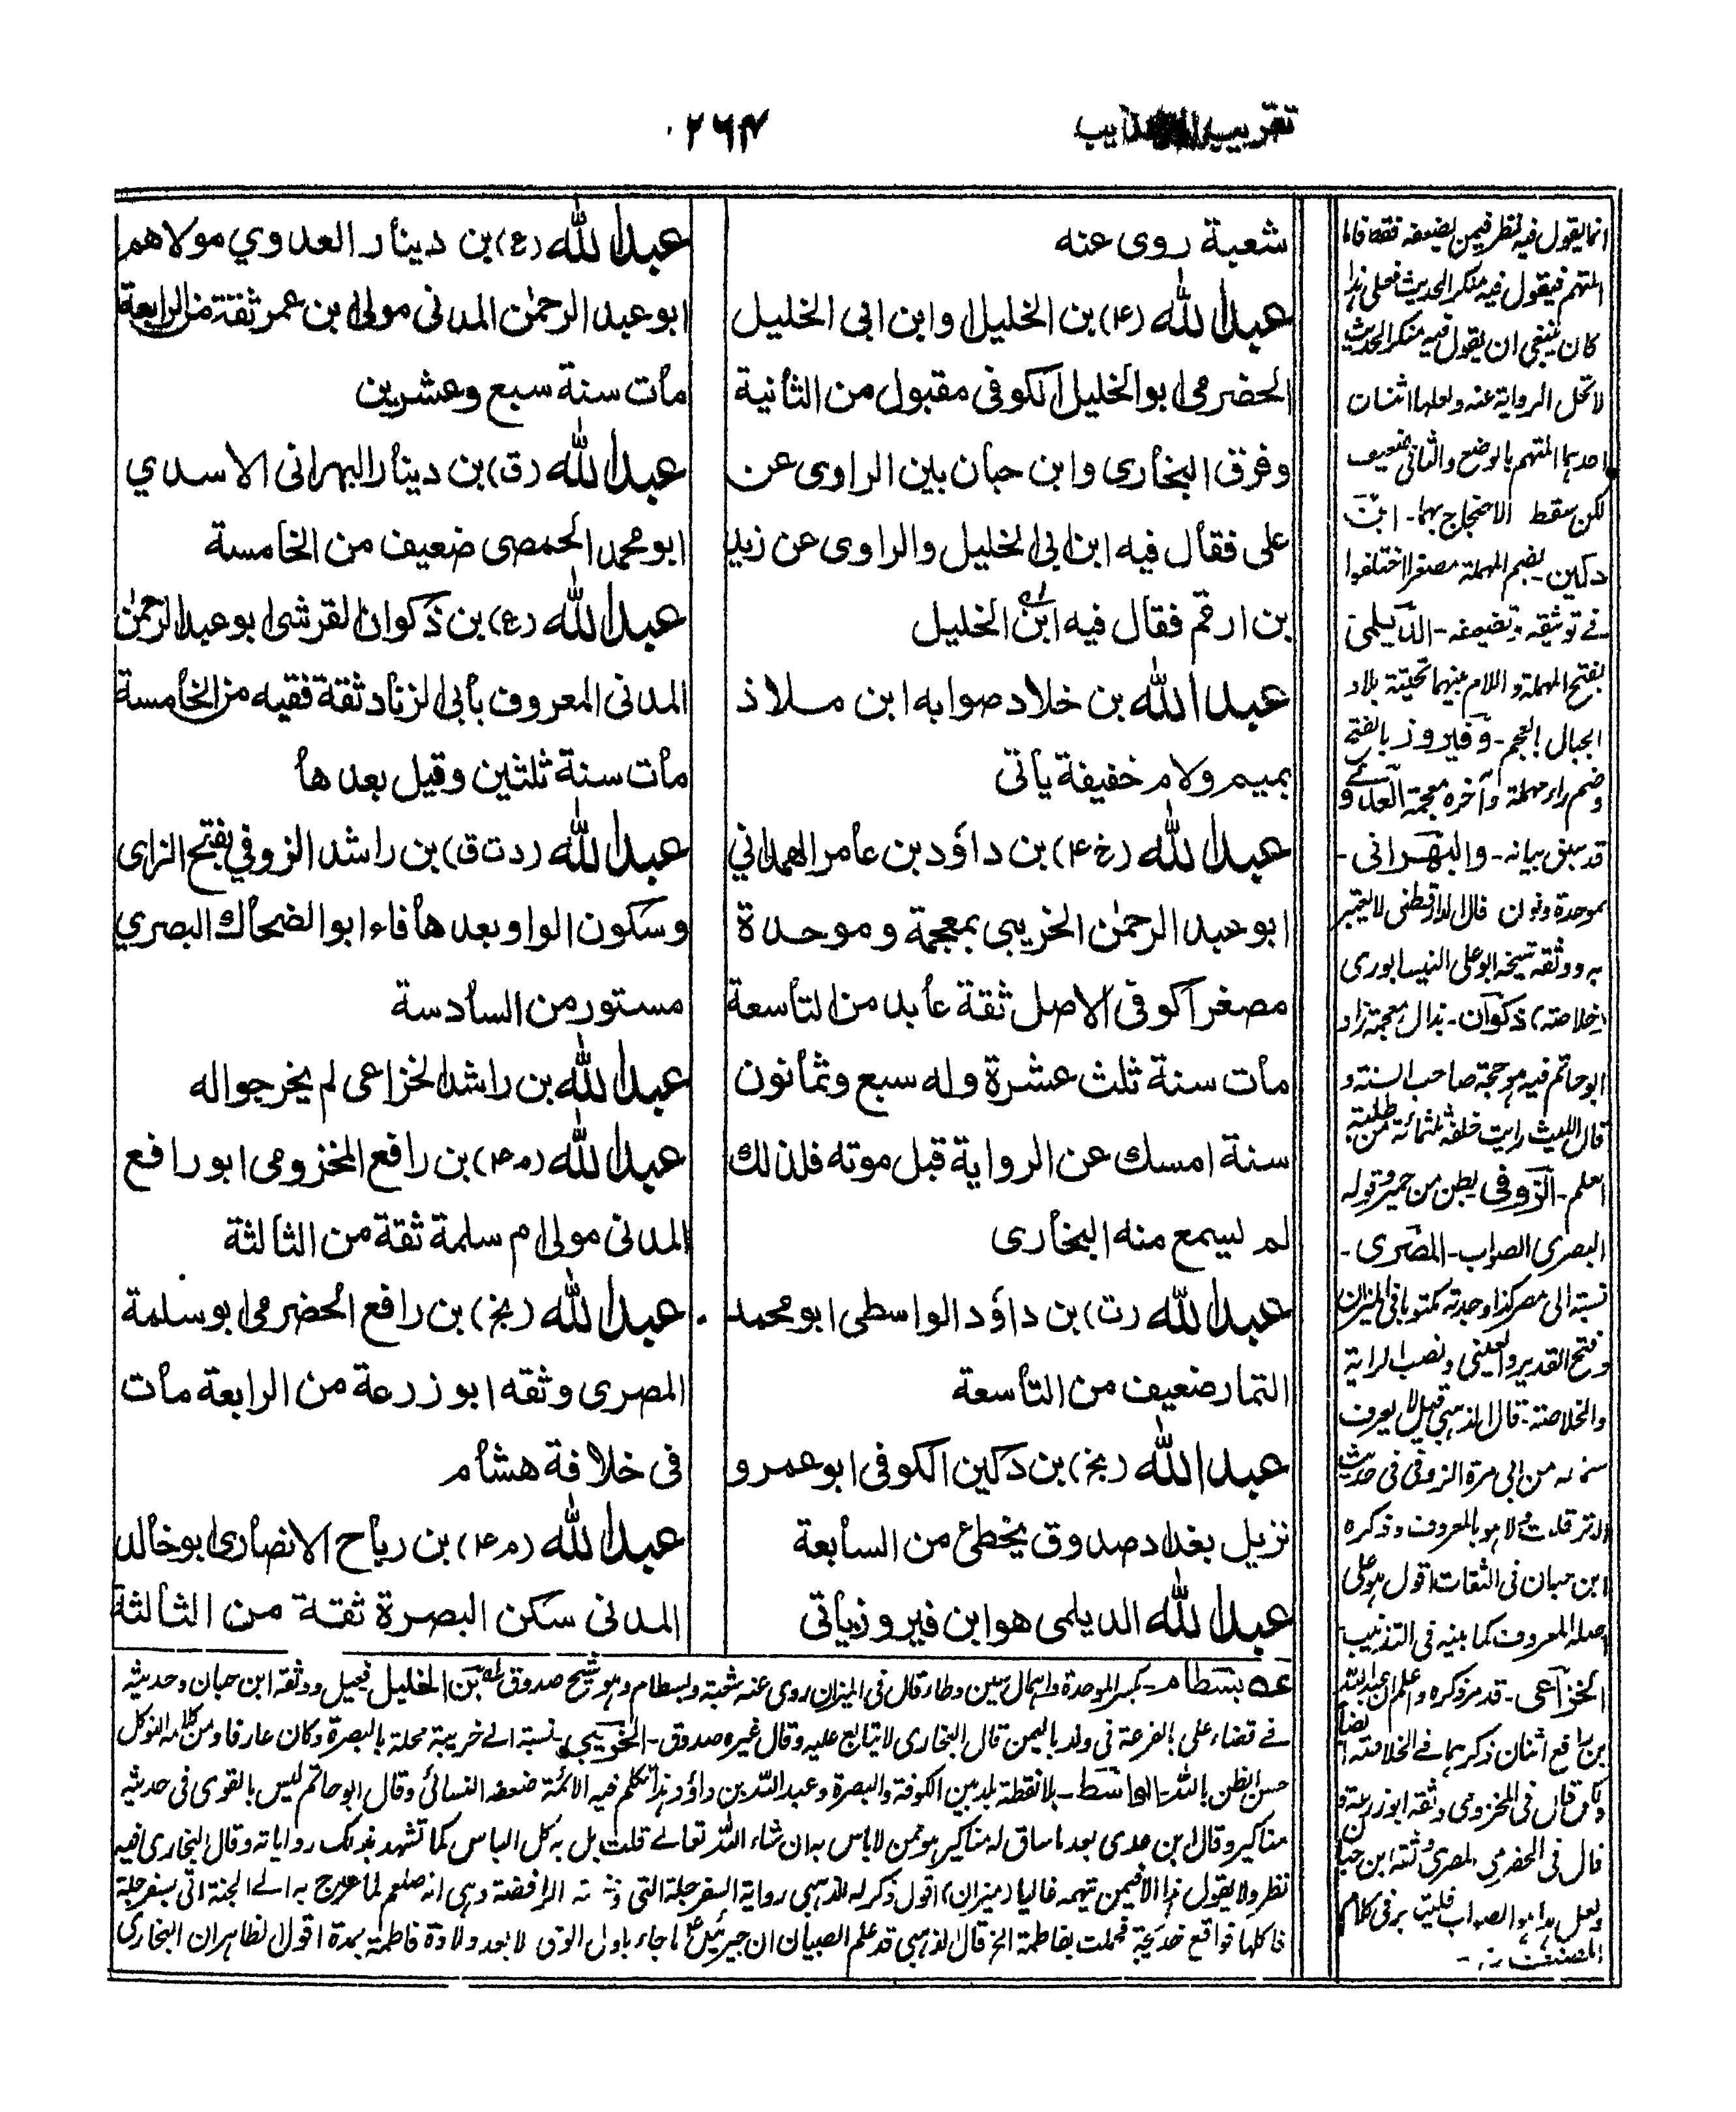 تقريب
٢٦٤
شعبة روى عنه
عبد الله (٤) بن الخليل او ابن ابى الخليل
الحضرمى ابو الخليل الكوفى مقبول من الثانية
وفرق البخارى وابن حبان بين الراوى عن
على فقال فيه ابن ابى الخليل والراوى عن زيد
بن ارقم فقال فيه ابن الخليل
عبد الله بن خلاد صوابه ابن ملاذ
بميم ولام خفيفة يأتى
عبد الله (خ ٤) بن داؤد بن عامر الهمدانى
ابو عبد الرحمن الخريبى بمعجمة وموحدة
مصغرا كوفى الاصل ثقة عابد من التاسعة
مات سنة ثلث عشرة وله سبع وثمانون
سنة امسك عن الرواية قبل موته فلذلك
لم يسمع منه البخارى
عبد الله (ت) بن داؤد الواسطى ابو محمد
التمار ضعيف من التاسعة
عبد الله (بخ) بن دكين الكوفى ابو عمرو
نزيل بغداد صدوق يخطئ من السابعة
عبد الله الديلمى هو ابن فيروز يأتى
عبد الله (ع) بن دينار العدوي مولاهم
ابو عبد الرحمن المدنى مولى ابن عمر ثقة من الرابعة
مات سنة سبع وعشرين
عبد الله (ق) بن دينار البهرانى الاسدي
ابو محمد الحمصى ضعيف من الخامسة
عبد الله (ع) بن ذكوان القرشى ابو عبد الرحمن
المدنى المعروف بأبى الزناد ثقة فقيه من الخامسة
مات سنة ثلثين وقيل بعدها
عبد الله (د ت ق) بن راشد الزوفي بفتح الزاى
وسكون الواو بعدها فاء ابو الضحاك البصري
مستور من السادسة
عبد الله بن راشد الخزاعى لم يخرجوا له
عبد الله (م ٤) بن رافع المخزومى ابو رافع
المدنى مولى ام سلمة ثقة من الثالثة
عبد الله (بخ) بن رافع الحضرمى ابو سلمة
المصرى وثقه ابو زرعة من الرابعة مات
فى خلافة هشام
عبد الله (م ٤) بن رباح الانصارى ابو خالد
المدنى سكن البصرة ثقة من الثالثة
انما يقول فيه نظر فيمن يضعفه فقط فاما
المتهم فيقول فيه منكر الحديث فعلى هذا
كان ينبغى ان يقول فيه منكر الحديث
لا تحل الرواية عنه ولعلها اثنان
احدهما المتهم بالوضع والثانى ضعيف
لكن سقط الاحتجاج بهما - ابن
دكين - بضم المهملة مصغرا اختلفوا
فے توثيقه وتضعيفه - الديلمى
بفتح المهملة واللام بينهما تحتية بلاد
الجبال العجم - وفيروز بالفتح
وضم راء مهملة وآخره معجمة العدوى
قد سبق بيانه - والبهرانى -
بموحدة ونون قال الدارقطنى لا يعتبر
به ووثقه شيخه ابو على النيسابورى
(خلاصة) ذكوان - بذال معجمة زاد
ابو حاتم فيه هو حجة صاحب السنة و
قال الليث رايت خلفه ثلثمائة من طلبة
العلم - الزوفى بطن من حمير وقوله
البصرى الصواب - المصرى -
نسبة الى مصر كذا وجدته مكتوبا فى الميزان
وفتح القدير والعينى ونصب الراية
والخلاصة - قال الذهبى قيل لا يعرف
سماعه من ابى مرة الزوفى فى حديث
الوتر قلت ولا هو بالمعروف وذكره
ابن حبان فى الثقات اقول هو على
اصله المعروف كما بينه فى التذنيب
الخزاعى - قد مر ذكره واعلم ان عبد الله
بن رافع اثنان ذكرهما فے الخلاصة ايضا
قال فى المخزومى وثقه ابو زرعة و
قال فى الحضرمى المصرى وثقه ابن حبان
ولعل هذا هو الصواب
المصنف
عه بسطام - بكسر الموحدة واهمال سين وطاء قال فى الميزان روى عنه شعبة وبسطام وهو شيخ صدوق له بن الخليل فيحيل ووثقه ابن حبان وحديثه
فے قضاء على بالقرعة فى ولد باليمن قال البخارى لا يتابع عليه وقال غيره صدوق - الخريبى نسبة الے خريبة محلة بالبصرة وكان عارفا ومن كلامه التوكل
حسن الظن بالله - الواسطى - بلا نقطة بلد بين الكوفة والبصرة وعبد الله بن داؤد هذا تكلم فيه الائمة ضعفه النسائى وقال ابو حاتم ليس بالقوى فى حديثه
مناكير وقال ابن عدى بعد ما ساق له مناكير هو ممن لا باس به ان شاء الله تعالے قلت بل به كل الباس كما تشهد بذلك رواياته وقال البخارى فيه
نظر ولا يقول هذا الا فيمن يتهمه غالبا (ميزان) اقول ذكر له الذهبى رواية السفرجلة التى الرافضة وهى انه صلعم لما عرج به الے الجنة اتى بسفرجلة
فاكلها فواقع خديجة فحملت بفاطمة الخ قال الذهبى قد علم الصبيان ان جبرئيل ما جاء باول الوحى الا بعد ولادة فاطمة بمدة اقول الظاهر ان البخارى